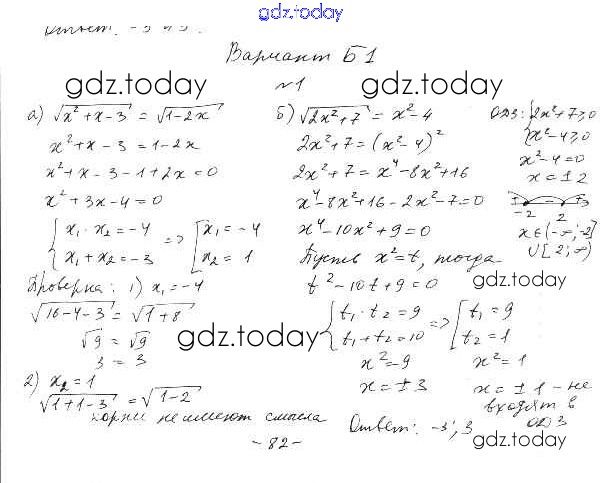 gdz.today
Ответ: -3 и 3.
Вариант Б1
gdz.today
gdz.today
№1
а) √(x²+x-3) = √(1-2x)
x²+x-3 = 1-2x
x²+x-3-1+2x=0
x²+3x-4=0
{x₁·x₂=-4
{x₁+x₂=-3
=> [x₁=-4
[x₂=1
Проверка: 1) x₁=-4
√(16-4-3) = √(1+8)
√9 = √9
3 = 3
2) x₂=1
√(1+1-3) = √(1-2)
корни не имеют смысла
б) √(2x²+7) = x²-4
2x²+7=(x²-4)²
2x²+7=x⁴-8x²+16
x⁴-8x²+16-2x²-7=0
x⁴-10x²+9=0
Пусть x²=t, тогда
t²-10t+9=0
{t₁·t₂=9
{t₁+t₂=10
=> [t₁=9
[t₂=1
x²=9
x=±3
x²=1
x=±1-не
входят в
ОДЗ
Ответ: -3; 3
ОДЗ: {2x²+7≥0
{x²-4≥0
x²-4=0
x=±2
-2 2
x∈(-∞;-2]
∪[2;∞)
gdz.today
gdz.today
gdz.today
-82-